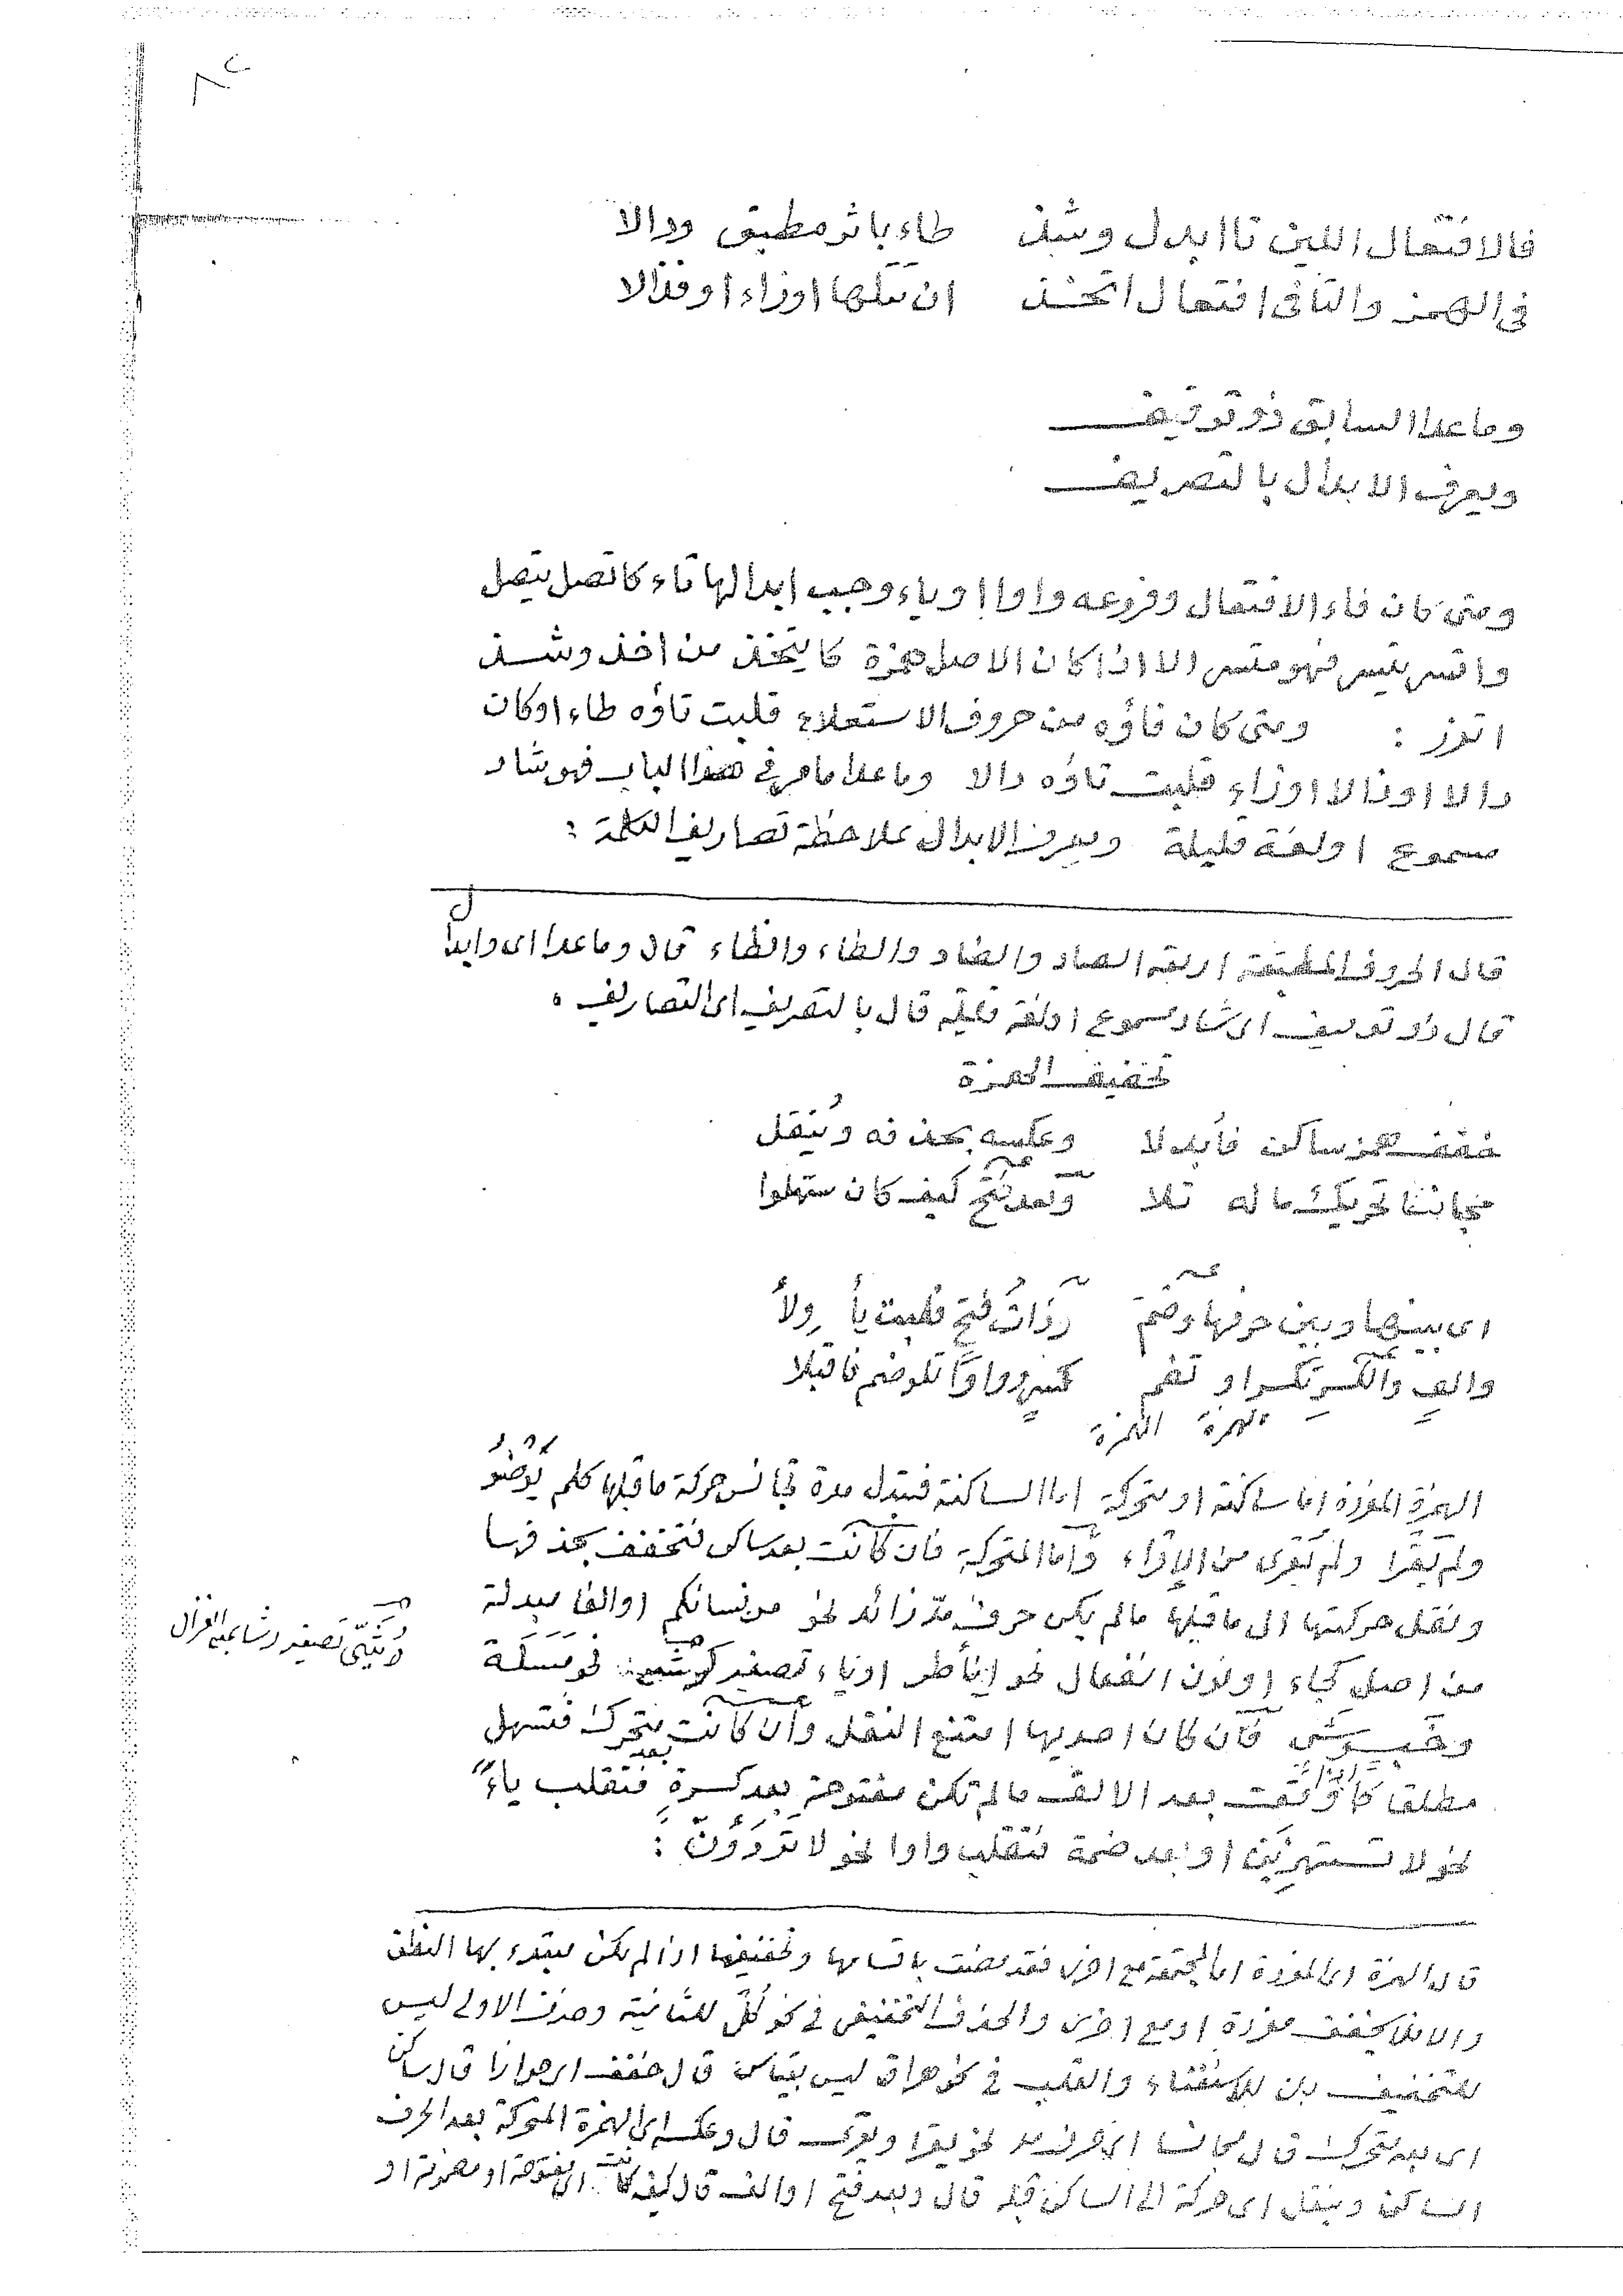 ٨٢
فالافتعال اللين تا ابدل وشذ طاء باثر مطبق ودالا
فى الهمز والتافى افتعال اتخذ ان تتلها اوزاء اوفذالا
وما عدا السابق ذو توقيف
ويعرف الابدال بالتصريف
ومتى كان فاء الافتعال وفروعه واوا اوياء وجب ابدالها تاء كاتصل يتصل
واتسر يتسر فهو متسر الا اذا كان الاصل همزة كايتخذ من اخذ وشذ
اتزر : ومتى كان فاؤه من حروف الاستعلاء قلبت تاؤه طاء اوكان
دالا اوذالا اوزاء قلبت تاؤه دالا وما عدا ما مر فى هذا الباب فهو شاذ
مسموع اولغة قليلة ويعرف الابدال بملاحظة تصاريف الكلمة :
قال الحروف المطبقة اربعة الصاد والضاد والطاء والظاء قال وما عدا اى وابدال
قال ذو توقيف اى شاذ مسموع اولغة قليلة قال بالتصريف اى التصاريف
تخفيف الهمزة
خفف همز ساكن فأبدلا وعكسه بحذفه ويُنقل
مجانسا تحريك ما له تلا وبعد فتح كيف كان سهلوا
اى بينها وبين حرفها وضم وذات فتح قلبت يا ولا
والف والكسر تكسر او تضم كسر وواوا تلو ضم فاقبلا
الهمزة الهمزة
الهمزة المفردة اما ساكنة او متحركة اما الساكنة فتبدل مدة تجانس حركة ما قبلها كلم يوضو
ولم يقرا ولم يقرى من الاقراء واما المتحركة فان كانت بعد ساكن فتخفف بحذفها
ونقل حركتها الى ما قبلها مالم يكن حرف مدّ زائد نحو من نسائكم او الفا مبدلة
من اصل كجاء او نون انفعال نحو انأطر اوياء تصغير نحو مَسَلَة
فان كان احديها امتنع النقل وان كانت بعد متحرك فتسهل
مطلقا كما وقعت بعد الالف مالم تكن مفتوحة بعد كسرة فتقلب ياءً
نحو لا تستهزيَن او بعد ضمة فتقلب واوا نحو لا تردوُونّ :
تصغير رشا بمعنى الغزال
قال الهمزة اى المفردة اما المجتمعة مع اخرى فقد مضت باقسامها وتخفيفها اذا لم يكن مبتدء بها النطق
والا فلا يخفف مفردة او مع اخرى والحذف التخفيفى فى نحو كُلْ للثانية وحذف الاولى ليس
للتخفيف بل للاستغناء والقلب فى نحو هراق ليس بقياس قال خفف اى جوازا قال ساكن
اى بعد متحرك قال مجانسا اى حرف مد نحو يقرا ويقرى قال وعكسه اى الهمزة المتحركة بعد الحرف
الساكن وينقل اى حركة الى الساكن قبله قال وبعد فتح او الف قال كيف كانت اى مفتوحة او مضمومة او